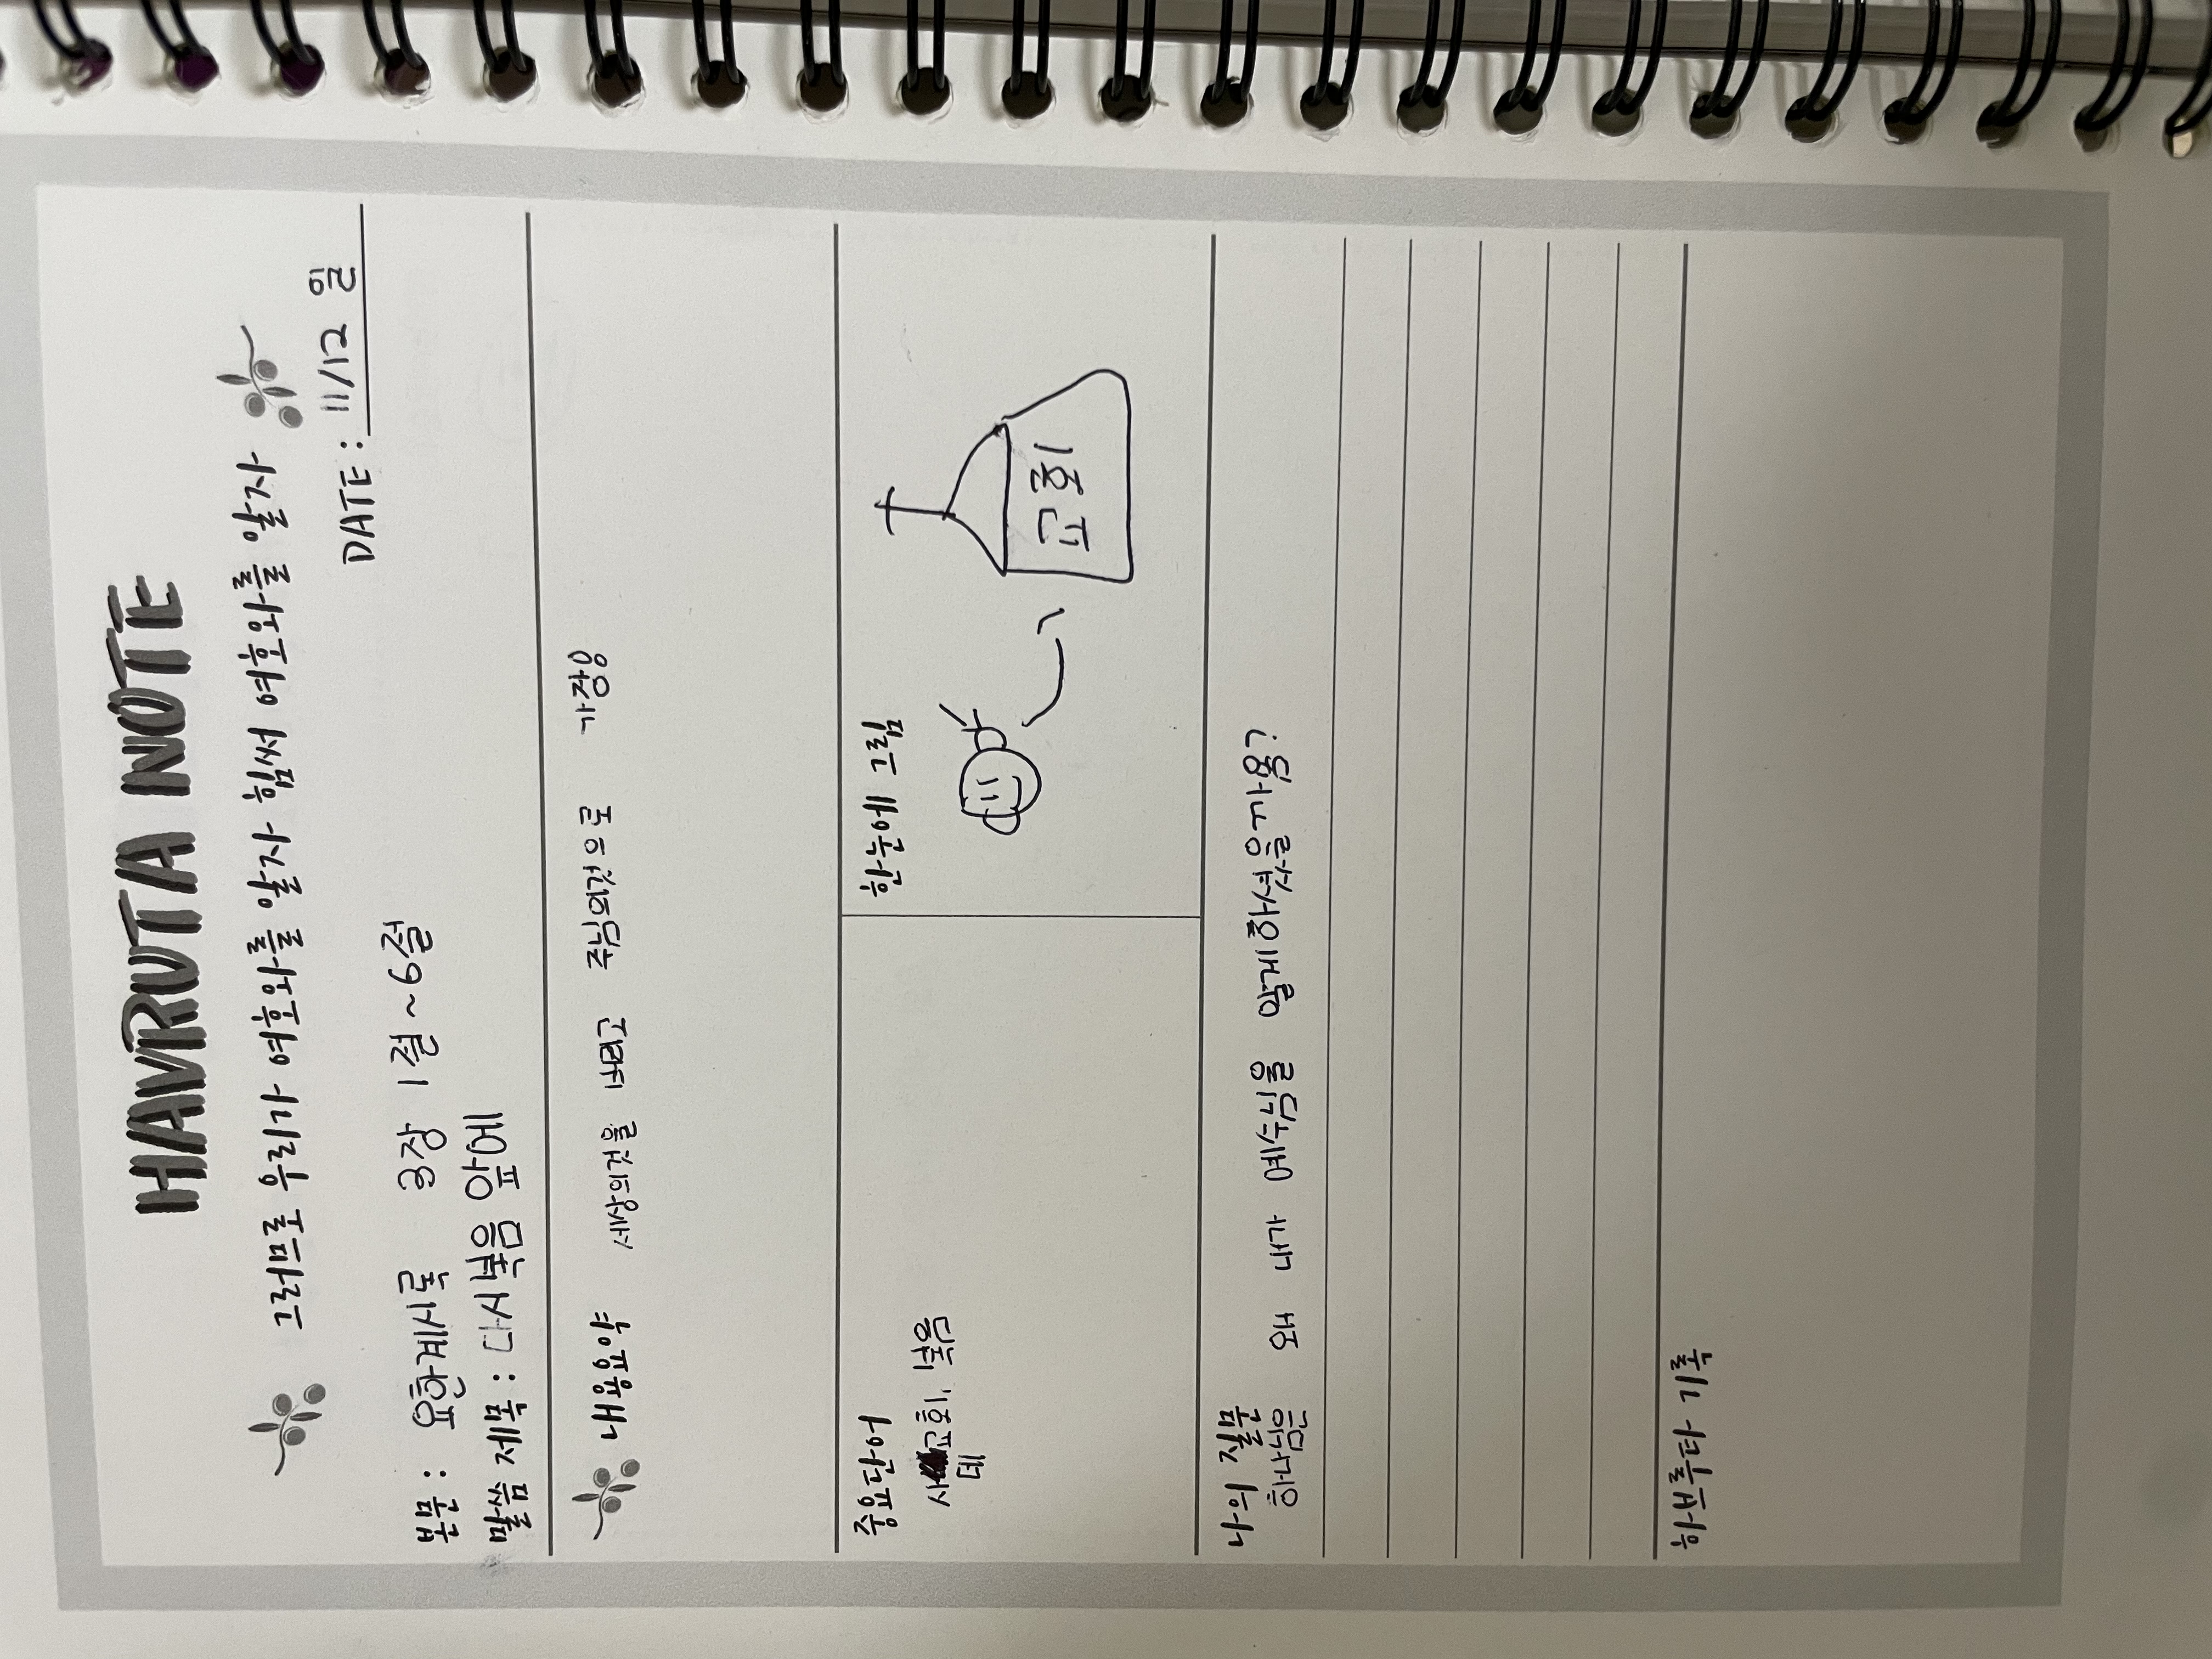 HAVRUTA NOTE
그러므로 우리가 여호와를 알자 힘써 여호와를 알자
DATE: 11/12 일
본문 : 요한계시록 3장 1절~6절
말씀 제목 : 다시복음 앞에
내용요약 세상의것을 버리고 주님의것으로 가장
주요단어
사 교회, 복음
데
한눈에 그림
교회
나의 질문
하나님은 왜 내가 예수님을 알게하셨을까용?
하브루타 기록